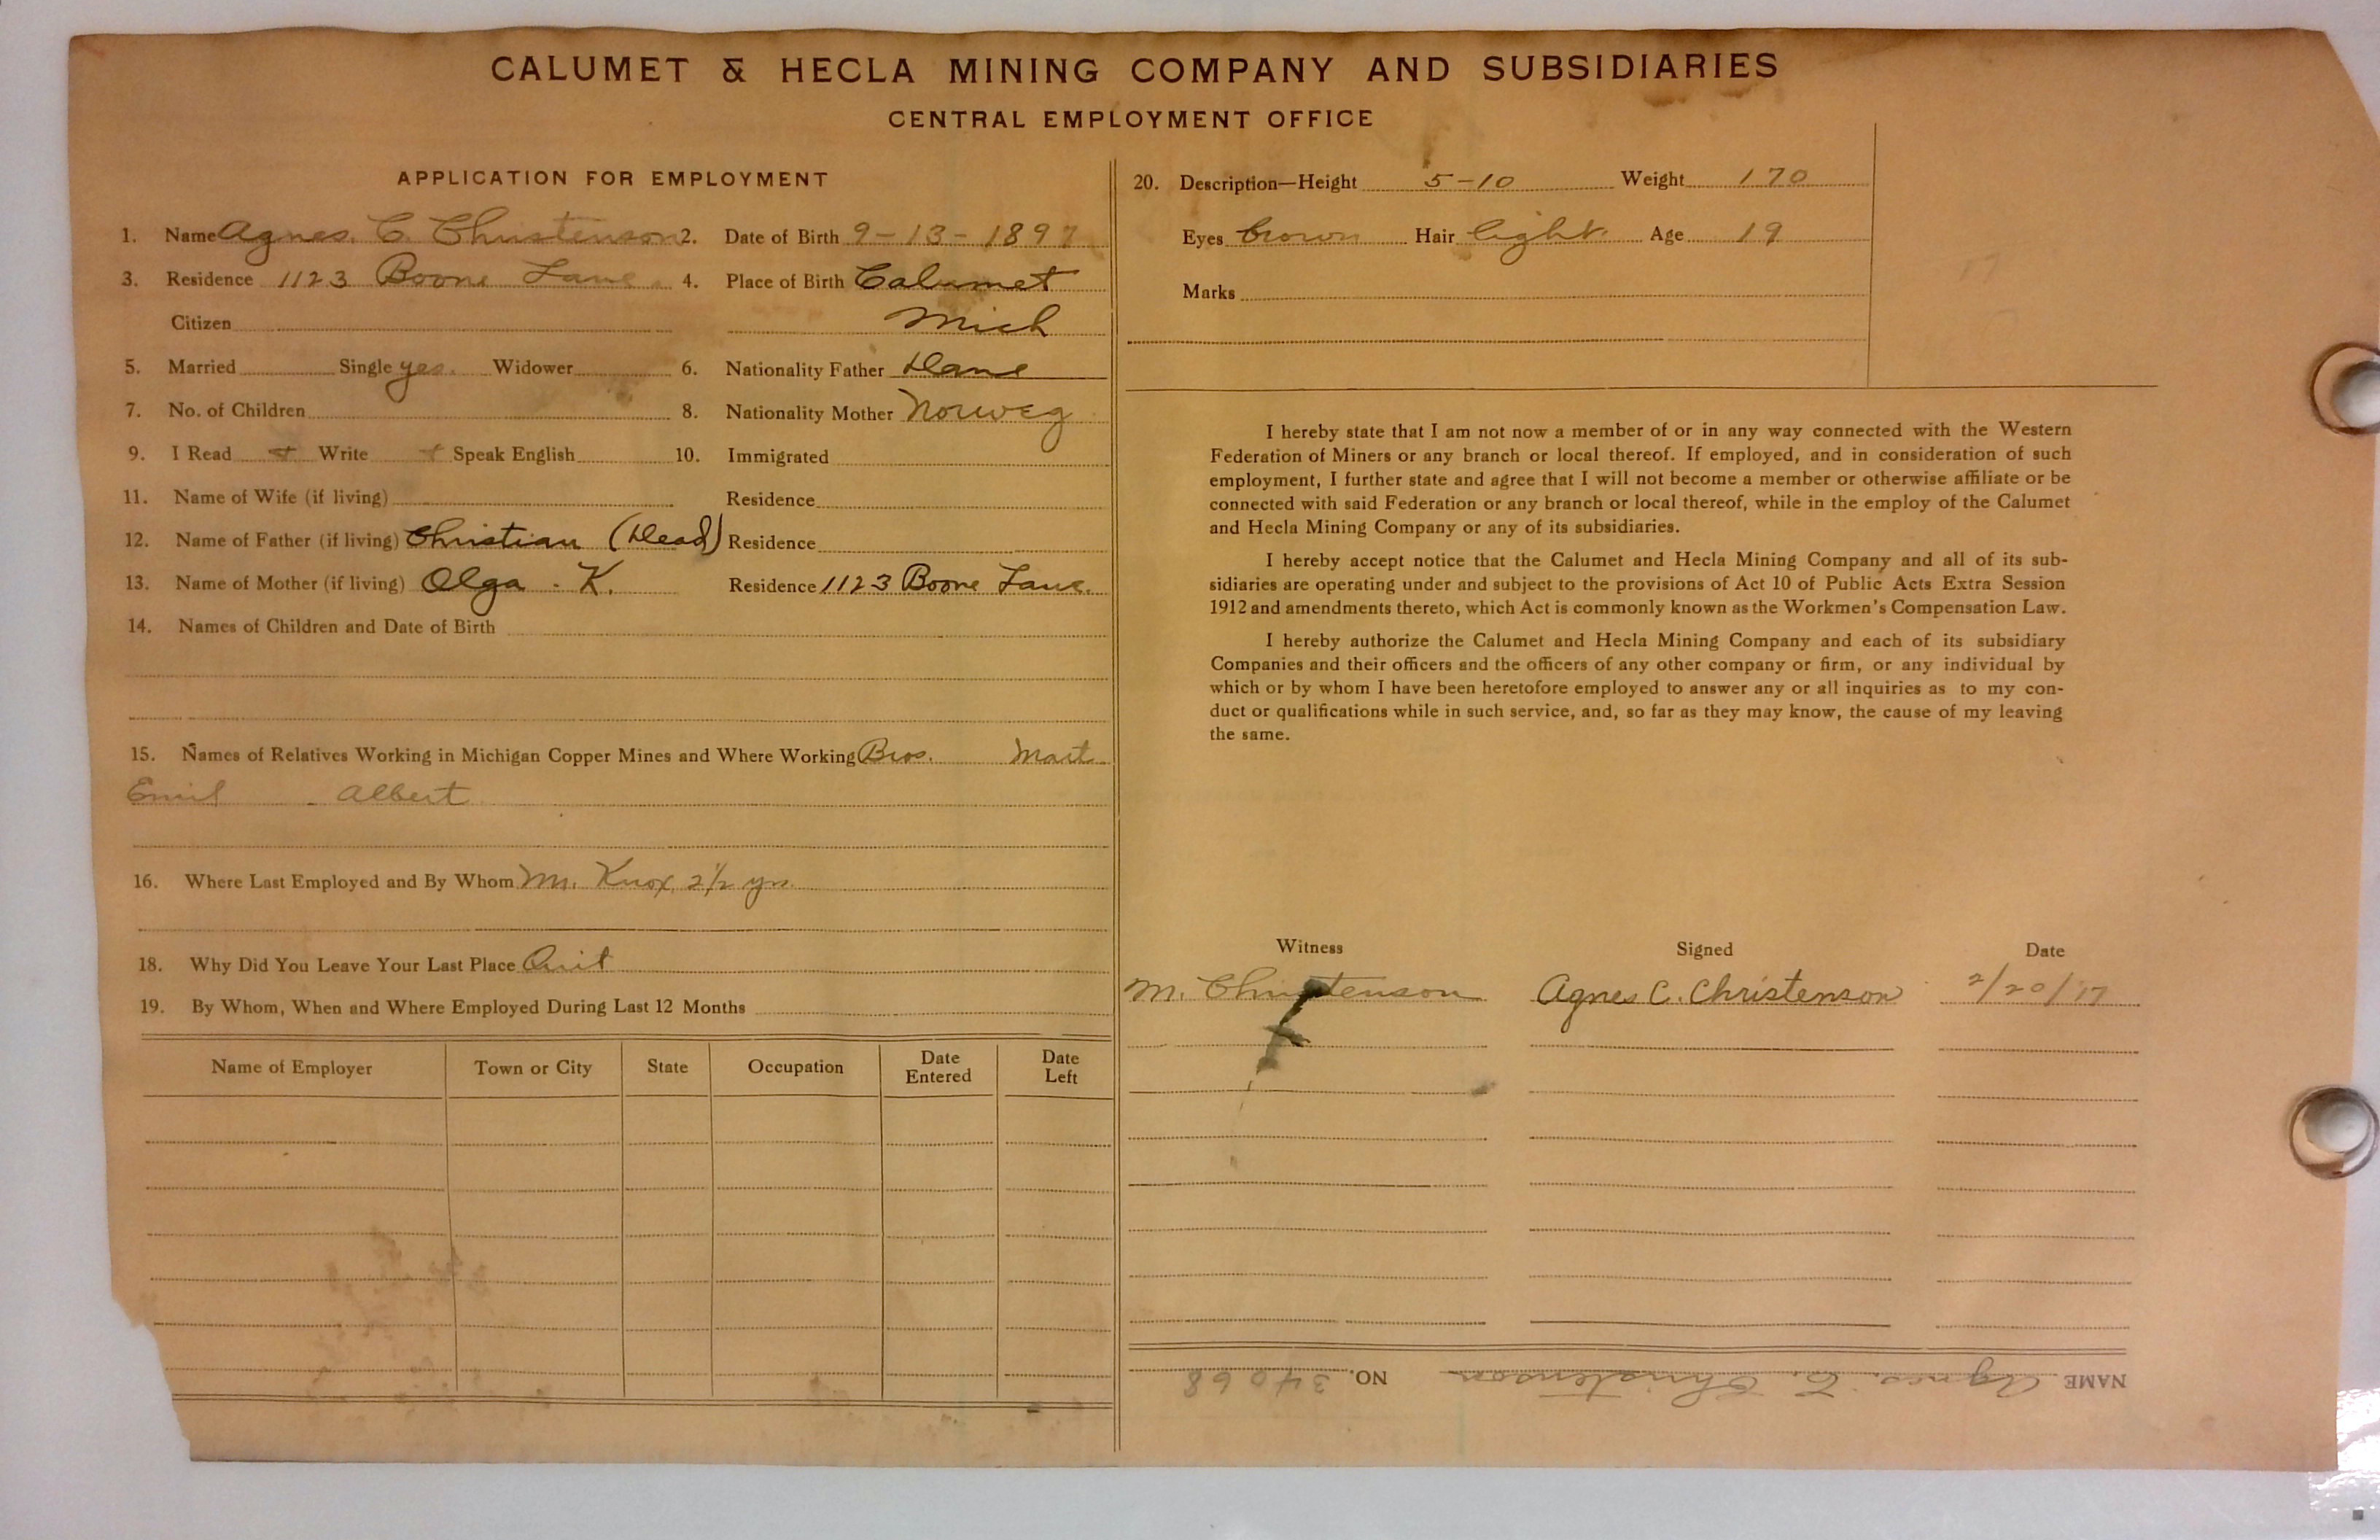 CALUMET & HECLA MINING COMPANY AND SUBSIDIARIES
CENTRAL EMPLOYMENT OFFICE
APPLICATION FOR EMPLOYMENT
1. Name Agnes C. Christenson 2. Date of Birth 9-13-1897
3. Residence 1123 Boone Lane. 4. Place of Birth Calumet
Citizen Mich
5. Married Single yes. Widower 6. Nationality Father Dane
7. No. of Children 8. Nationality Mother Norweg
9. I Read + Write + Speak English 10. Immigrated
11. Name of Wife (if living) Residence
12. Name of Father (if living) Christian (Dead) Residence
13. Name of Mother (if living) Olga - K. Residence 1123 Boone Lane.
14. Names of Children and Date of Birth
15. Names of Relatives Working in Michigan Copper Mines and Where Working Bros. Mart
Emil Albert
16. Where Last Employed and By Whom M. Knox, 2½ yrs.
18. Why Did You Leave Your Last Place Quit
19. By Whom, When and Where Employed During Last 12 Months
Name of Employer Town or City State Occupation Date Entered Date Left
20. Description—Height 5-10 Weight 170
Eyes brown Hair light. Age 19
Marks
I hereby state that I am not now a member of or in any way connected with the Western
Federation of Miners or any branch or local thereof. If employed, and in consideration of such
employment, I further state and agree that I will not become a member or otherwise affiliate or be
connected with said Federation or any branch or local thereof, while in the employ of the Calumet
and Hecla Mining Company or any of its subsidiaries.
I hereby accept notice that the Calumet and Hecla Mining Company and all of its sub-
sidiaries are operating under and subject to the provisions of Act 10 of Public Acts Extra Session
1912 and amendments thereto, which Act is commonly known as the Workmen's Compensation Law.
I hereby authorize the Calumet and Hecla Mining Company and each of its subsidiary
Companies and their officers and the officers of any other company or firm, or any individual by
which or by whom I have been heretofore employed to answer any or all inquiries as to my con-
duct or qualifications while in such service, and, so far as they may know, the cause of my leaving
the same.
Witness Signed Date
M. Christenson Agnes C. Christenson 2/20/17
NAME Agnes C. Christenson NO. 34068